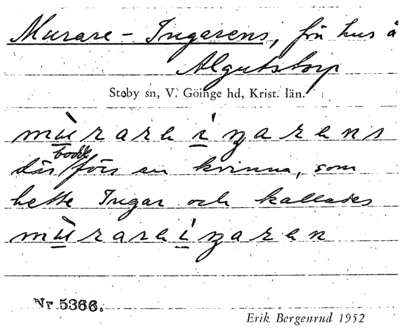 Murare-Ingarens, frn hus å
Algutstorp
Stoby sn, V. Göinge hd, Krist. län.
mùrareinarens
där bodde förs en kvinna, som
hette Ingar och kallades
mùrareinaren
Nr 5366.
Erik Bergenrud 1952